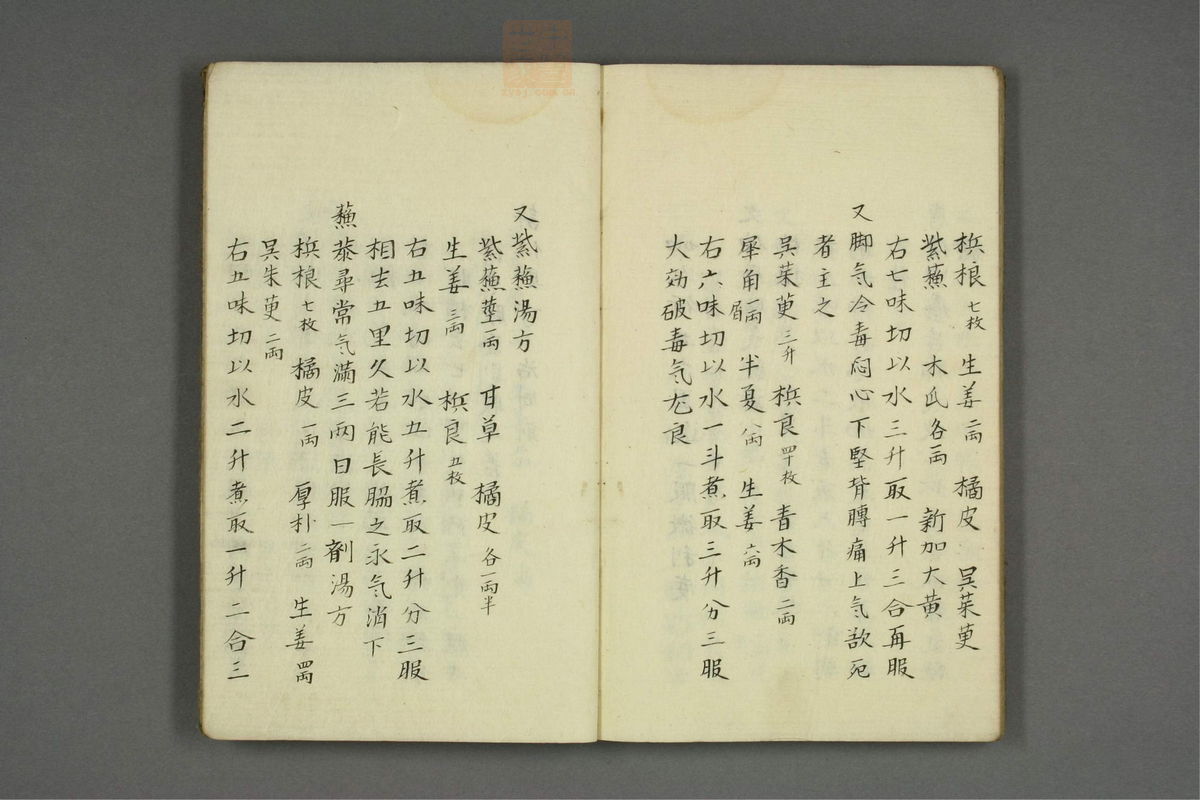 梹榔七枚 生姜二両 橘皮 呉茱萸
紫蘓 木瓜各一両 新加大黄
右七味切以水三升取一升三合再服
又脚气冷毒闷心下堅背膊痛上气欲死
者主之
呉茱萸三升 梹良四十枚 青木香二両
犀角二両屑 半夏八両 生姜六両
右六味切以水一斗煮取三升分三服
大効破毒气尤良
又紫蘓湯方
紫蘓莖一両 甘草 橘皮各一両半
生姜三両 梹良五枚
右五味切以水五升煮取二升分三服
相去五里久若能長服之永气消下
蘓恭尋常气滿三両日服一劑湯方
梹榔七枚 橘皮一両 厚朴二両 生姜四両
呉朱萸二両
右五味切以水二升煮取一升二合三
zysj.com.cn